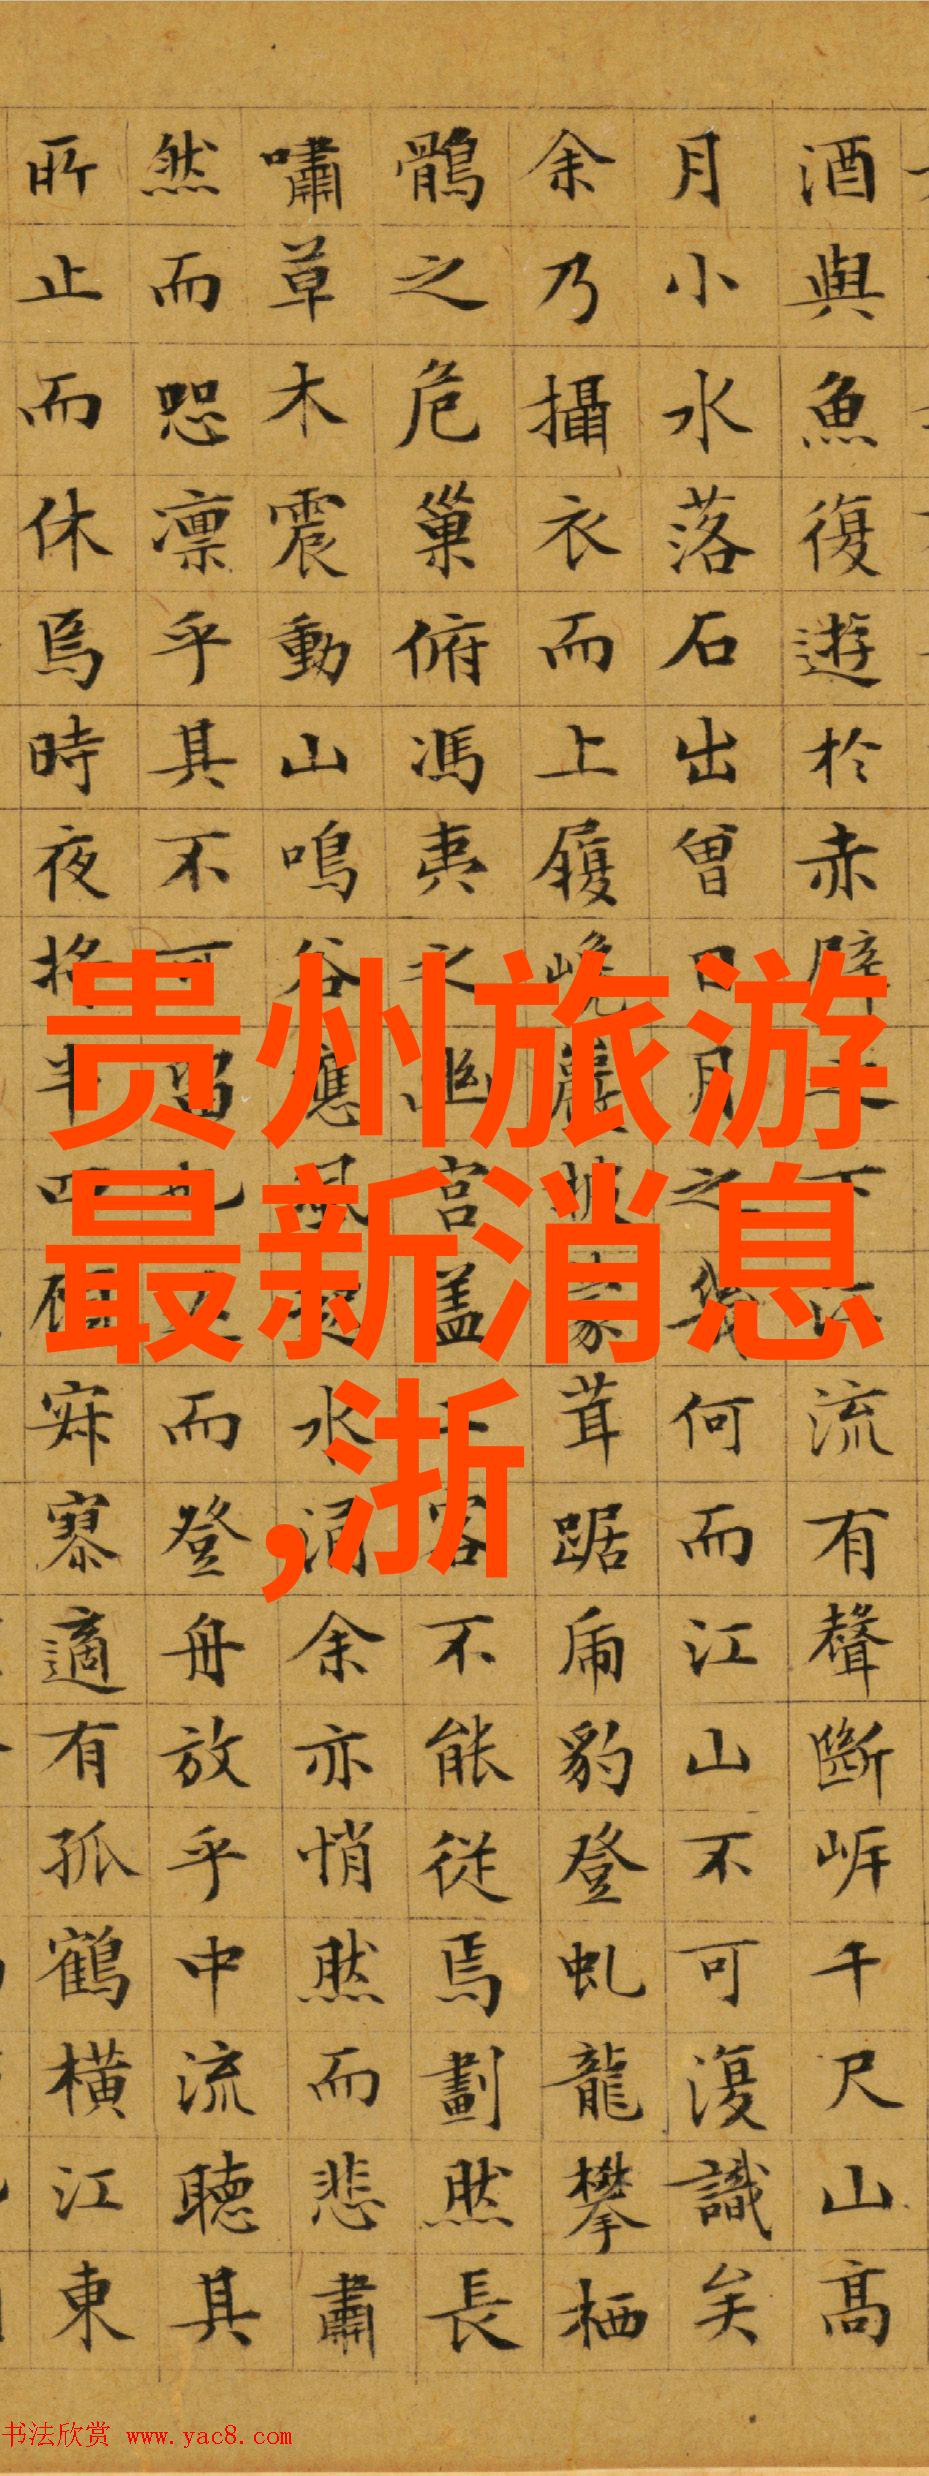 酒與魚復遊於赤壁之下江流有聲斷岸千尺山高
月小水落石出曾日月之幾何而江山不可復識矣
余乃攝衣而上履巉巖披蒙茸踞虎豹登虬龍攀栖
鶻之危巢俯馮夷之幽宮蓋二客不能從焉劃然長
嘯草木震動山鳴谷應風起水涌余亦悄然而悲肅
然而恐凛乎其不可留也反而登舟放乎中流聽其
所止而休焉時夜將半四顧寂寥適有孤鶴橫江東
贵州旅游
最新消息
,浙
书法欣赏 www.yac8.com